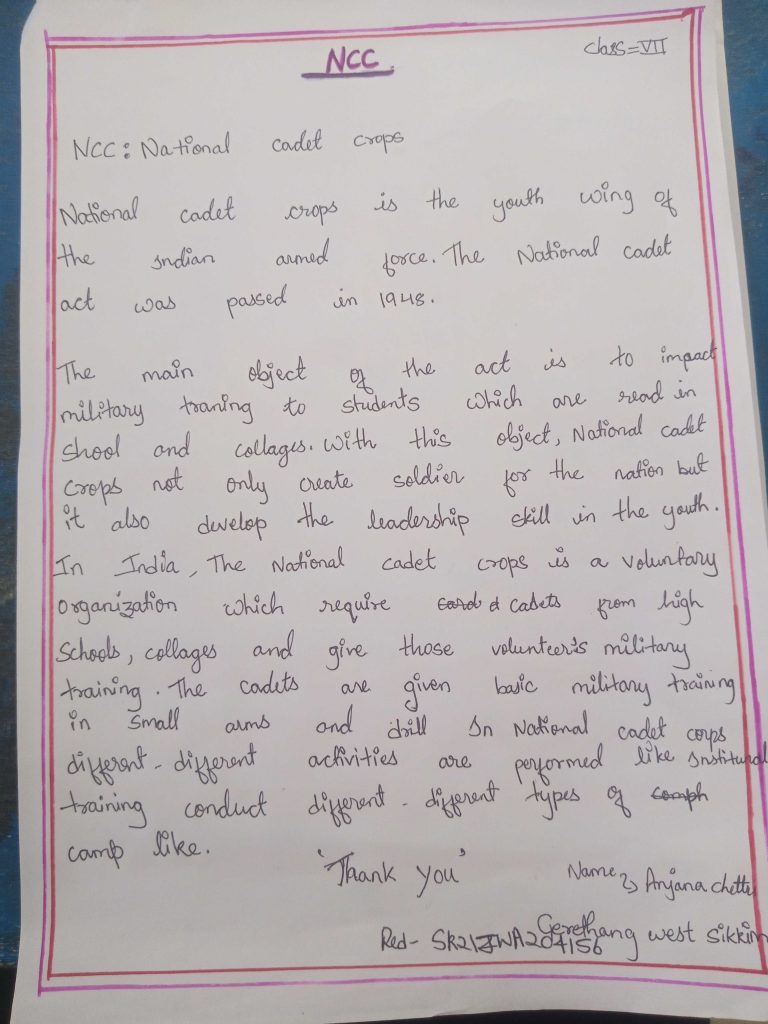 NCC
Class = VII
NCC : National cadet crops
National cadet crops is the youth wing of
the Indian armed force. The National cadet
act was passed in 1948.
The main object of the act is to impact
military traning to students which are read in
shool and collages. With this object, National cadet
crops not only create soldier for the nation but
it also develop the leadership skill in the youth.
In India, The National cadet crops is a voluntary
organization which require cadets from high
Schools, collages and give those volunteer's military
training. The cadets are given basic military training
in small arms and drill In National cadet corps
different - different activities are performed like Institunal
training conduct different - different types of comph
camp like.
'Thank you'
Name Anjana chettri
Gerethang west Sikkim
Red- SK21JWA204156